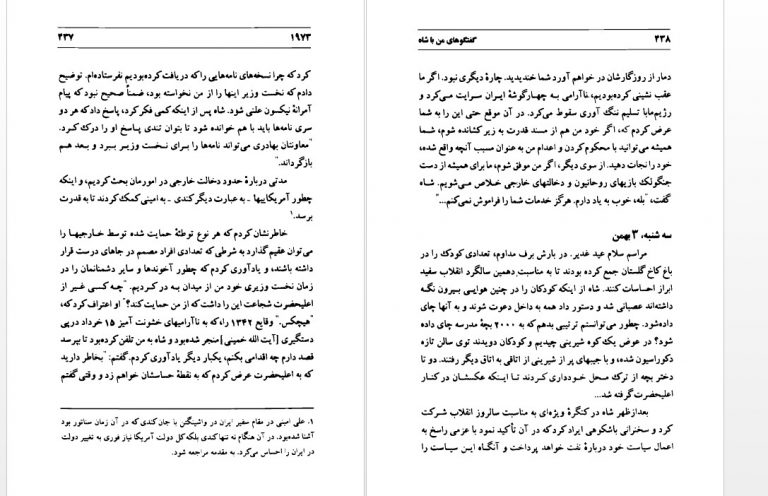 ۱۹۷۳ ۴۳۷
کرد که چرا نسخه‌های نامه‌هایی را که دریافت کرده‌بودیم نفرستاده‌ام. توضیح
دادم که نخست وزیر اینها را از من نخواسته بود، ضمناً صحیح نبود که پیام
آمرانهٔ نیکسون علنی شود. شاه پس از اینکه کمی فکر کرد، پاسخ داد که هر دو
سری نامه‌ها باید با هم خوانده شود تا بتوان تندی پاسخ او را درک کرد.
"معاونتان بهادری می‌تواند نامه‌ها را برای نخست وزیر ببرد و بعد هم
بازگرداند."
مدتی دربارهٔ حدود دخالت خارجی در امورمان بحث کردیم، و اینکه
چطور آمریکاییها ـ به عبارت دیگر کندی ـ به امینی کمک کردند تا به قدرت
برسد.۱
خاطرنشان کردم که هر نوع توطئهٔ حمایت شده توسط خارجیها را
می‌توان عقیم گذارد به شرطی که تعدادی افراد مصمم در جاهای درست قرار
داشته باشند، و یادآوری کردم که چطور آخوندها و سایر دشمنانمان را در
زمان نخست وزیری خود من از میدان به در کردیم. "چه کسی غیر از
اعلیحضرت شجاعت این را داشت که از من حمایت کند؟" او اعتراف کرد که،
"هیچکس." وقایع ۱۳۴۲ را، که به ناآرامیهای خشونت آمیز ۱۵ خرداد در پی
دستگیری [آیت الله خمینی] منجر شده‌بود و شاه به من تلفن کرده‌بود تا بپرسد
قصد دارم چه اقدامی بکنم، یکبار دیگر یادآوری کردم. گفتم: "بخاطر دارید
که به اعلیحضرت عرض کردم که به نقطهٔ حساسشان خواهم زد و وقتی گفتم
۱. علی امینی در مقام سفیر ایران در واشینگتن با جان کندی که در آن زمان سناتور بود
آشنا شده‌بود. در آن هنگام نه تنها کندی بلکه کل دولت آمریکا نیاز فوری به تغییر دولت
در ایران را احساس می‌کرد. به مقدمه مراجعه شود.
۴۳۸ گفتگوهای من با شاه
دمار از روزگارشان در خواهم آورد شما خندیدید. چارهٔ دیگری نبود. اگر ما
عقب نشینی کرده‌بودیم، ناآرامی به چهارگوشهٔ ایران سرایت می‌کرد و
رژیم‌ما‌با تسلیم ننگ آوری سقوط می‌کرد. در آن موقع حتی این را به شما
عرض کردم که، اگر خود من هم از مسند قدرت به زیر کشانده شوم، شما
همیشه می‌توانید با محکوم کردن و اعدام من به عنوان مسبب آنچه واقع شده،
خود را نجات دهید. از سوی دیگر، اگر من موفق شوم، ما برای همیشه از دست
جنگولک بازیهای روحانیون و دخالتهای خارجی خلاص می‌شویم. شاه
گفت، "بله، خوب به یاد دارم. هرگز خدمات شما را فراموش نمی‌کنم..."
سه شنبه، ۳ بهمن
مراسم سلام عید غدیر. در بارش برف مداوم، تعدادی کودک را در
باغ کاخ گلستان جمع کرده بودند تا به مناسبت دهمین سالگرد انقلاب سفید
ابراز احساسات کنند. شاه از اینکه کودکان را در چنین هوایی بیرون نگه
داشته‌اند عصبانی شد و دستور داد همه به داخل دعوت شوند و به آنها چای
داده‌شود. چطور می‌توانستم ترتیبی بدهم که به ۲۰۰۰ بچهٔ مدرسه چای داده
شود؟ در عوض یک کوه شیرینی چیدیم و کودکان دویدند توی سالن تازه
دکوراسیون شده، و با جیبهای پر از شیرینی از اتاقی به اتاق دیگر رفتند. دو تا
دختر بچه از ترک محل خودداری کردند تا اینکه عکسشان در کنار
اعلیحضرت گرفته شد...
بعدازظهر شاه در کنگرهٔ ویژه‌ای به مناسبت سالروز انقلاب شرکت
کرد و سخنرانی باشکوهی ایراد کرد که در آن تأکید نمود با عزمی راسخ به
اعمال سیاست خود دربارهٔ نفت خواهد پرداخت و آنگاه این سیاست را